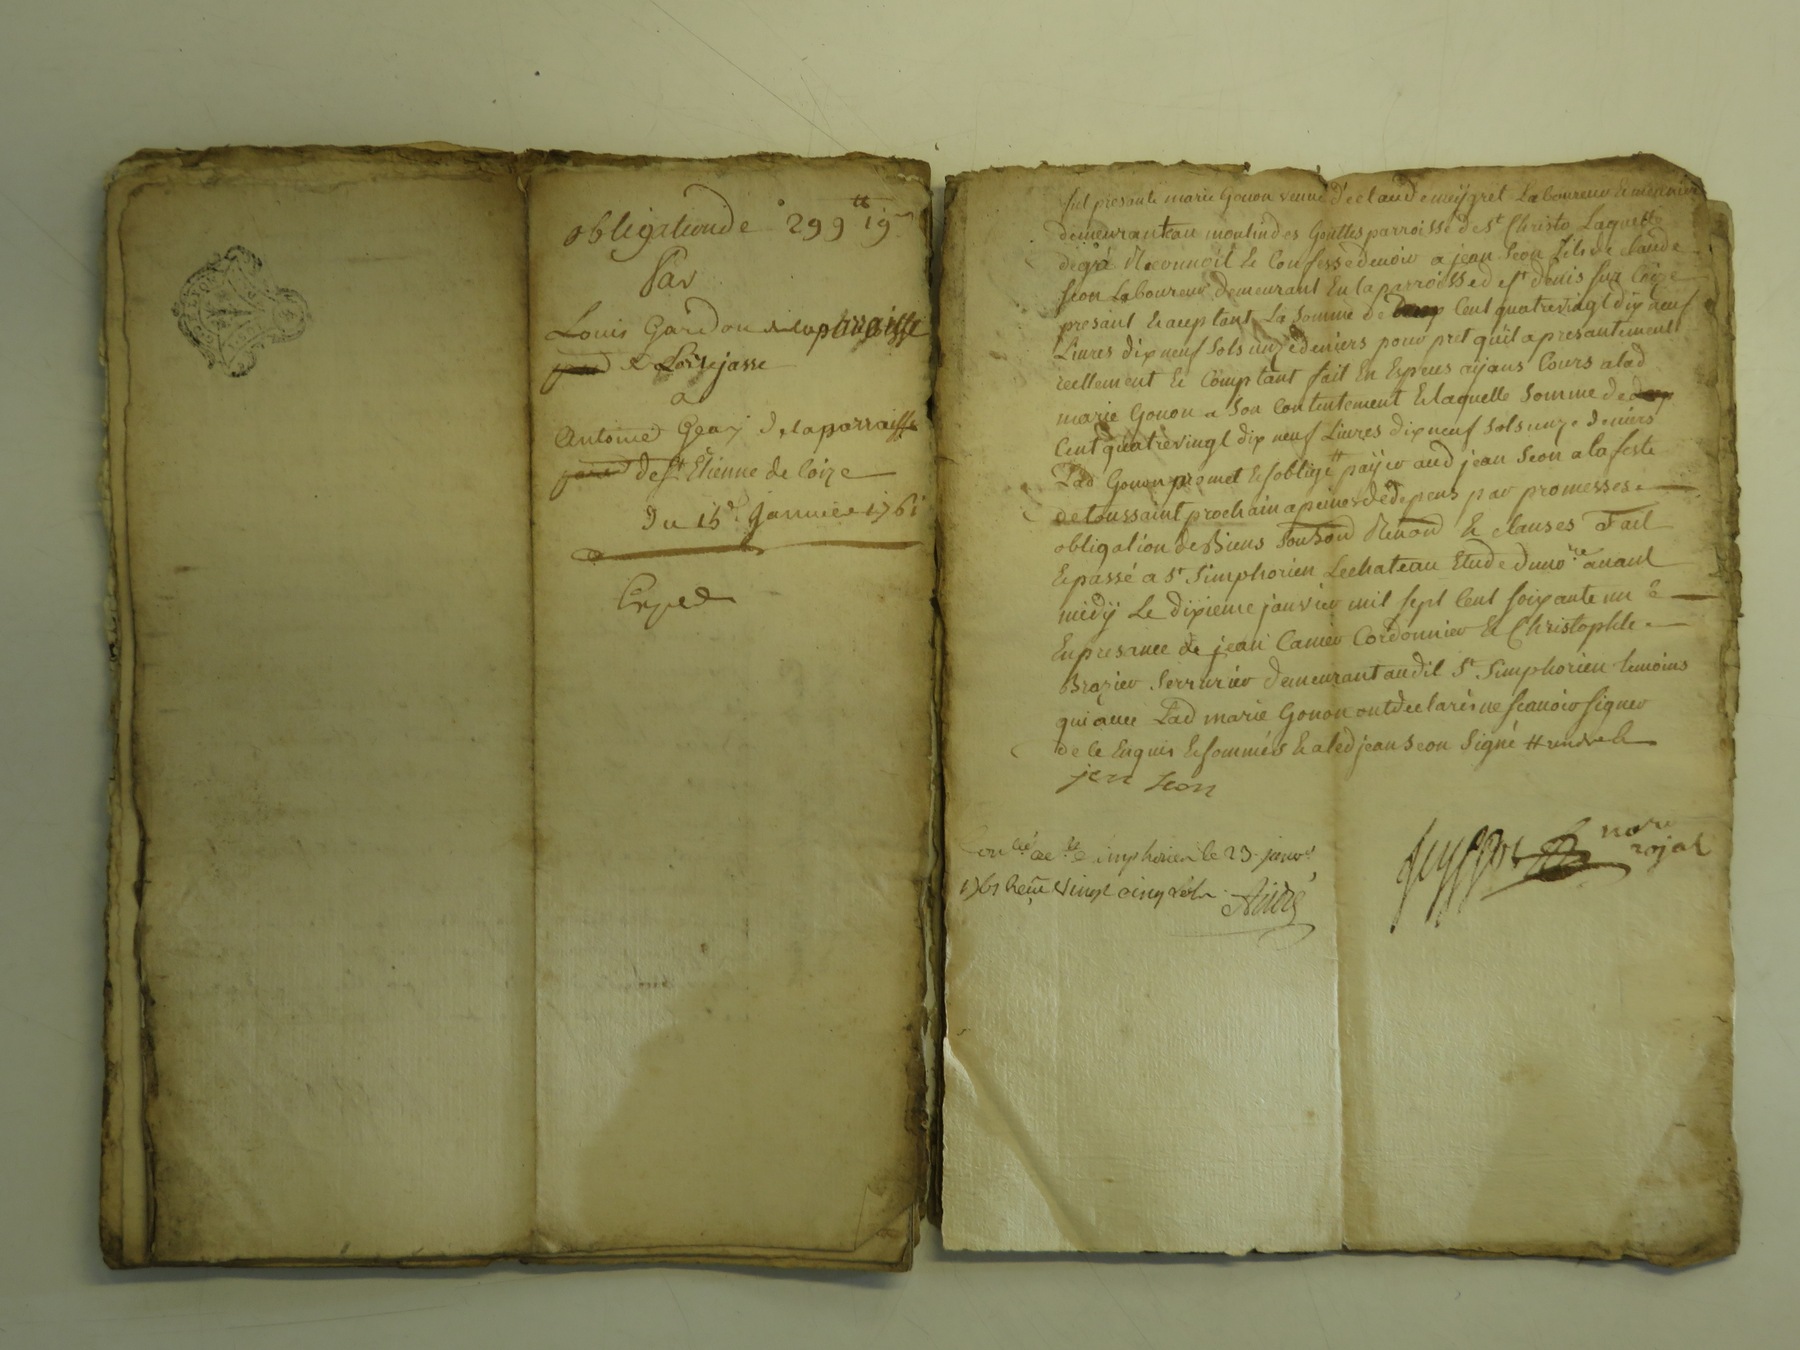 obligation de 299 tt 19 s
Par
Louis Gardon de la parroisse
de Larejasse
a
Antoine Geay de la parraisse
de St Etienne de Coize
du 16e. Janvier 1761
Exped
fut presante marie Gonon veuve de claude meygret Laboureur & meunier
demeurant au moulin des Gouttes parroisse de St Christo Laquelle
de gré Reconnoit & Confesse devoir a jean Seon fils de claude
Seon Laboureur demeurant En la parroisse de st denis sur Coize
presant & aceptant La Somme de Cent quatrevingt dix neuf
Livres dix neuf Sols unze deniers pour pret quil a presantement
reellement & Comptant fait En Especes ayans Cours a lad
marie Gonon a Son Contentement & laquelle Somme de
Cent quatrevingt dix neuf Livres dix neuf Sols unze deniers
Lad Gonon promet & soblige payer aud jean Seon a la feste
de toussaint prochain a peine de depens par promesses
obligation de Biens Soub Renon & clauses Fait
& passé a St Simphorien Lechateau Etude du nore avant
midy Le dixieme janvier mil sept Cent soixante un &
En presance de jean Canier Cordonnier & Christophle
Brazier Serrurier demeurant audit St Simphorien temoins
qui avec Lad marie Gonon ont declarés ne scavoir signer
de ce Enquis & sommés & a led jean Seon Signé
jean seon
nore
rojal
Conlé a St Simphorien le 23 janvr
1761 Reçu Vingt cinq sols